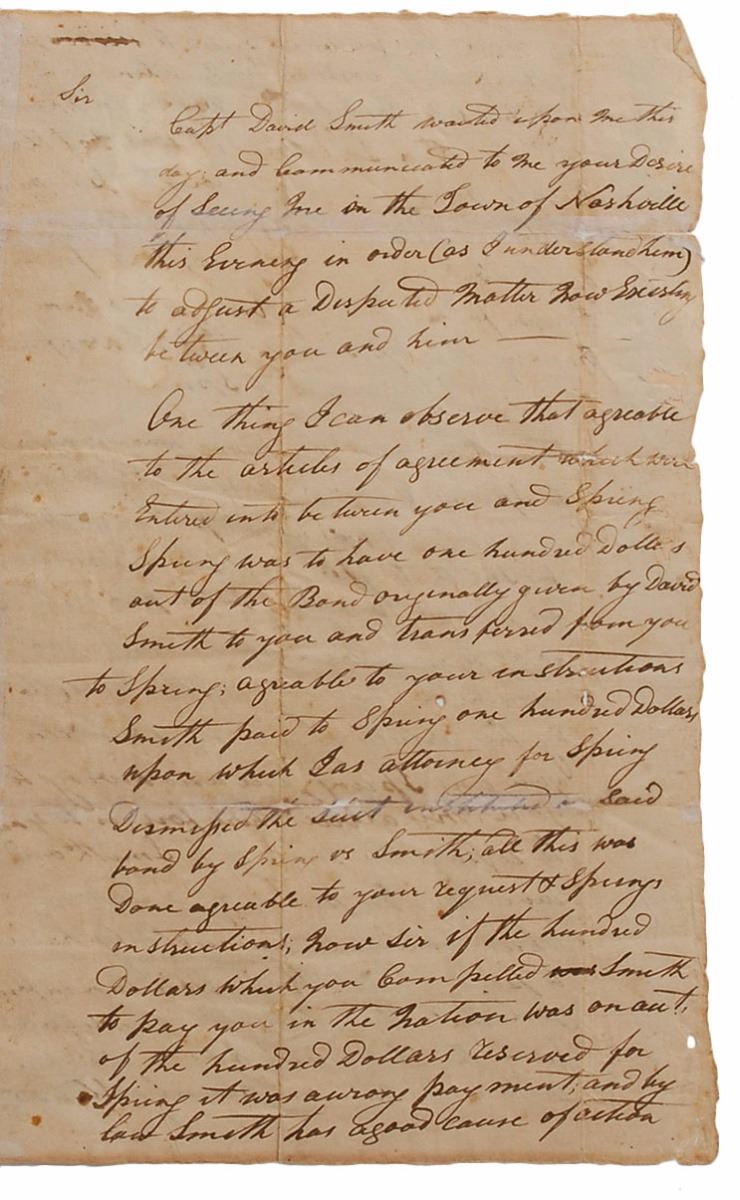 Sir
Capt David Smith waited upon me this
day; and Communicated to me your Desire
of Seeing me in the Town of Nashville
this Evening in order (as I understand him)
to adjust a Disputed Matter Now Existing
between you and him —
One thing I can observe that agreable
to the articles of agreement which were
Entered into between you and Spring
Spring was to have one hundred Dollers
out of the Bond originally given by David
Smith to you and transferred from you
to Spring; agreable to your instructions
Smith paid to Spring one hundred Dollars
upon which I as attorney for Spring
Dismissed the suit instituted on said
bond by Spring vs Smith; all this was
Done agreable to your request & Springs
instructions; Now Sir if the hundred
Dollars which you Compelled Smith
to pay you in the Nation was on act.
of the hundred Dollars reserved for
Spring it was a wrong payment, and by
law Smith has a good cause of action